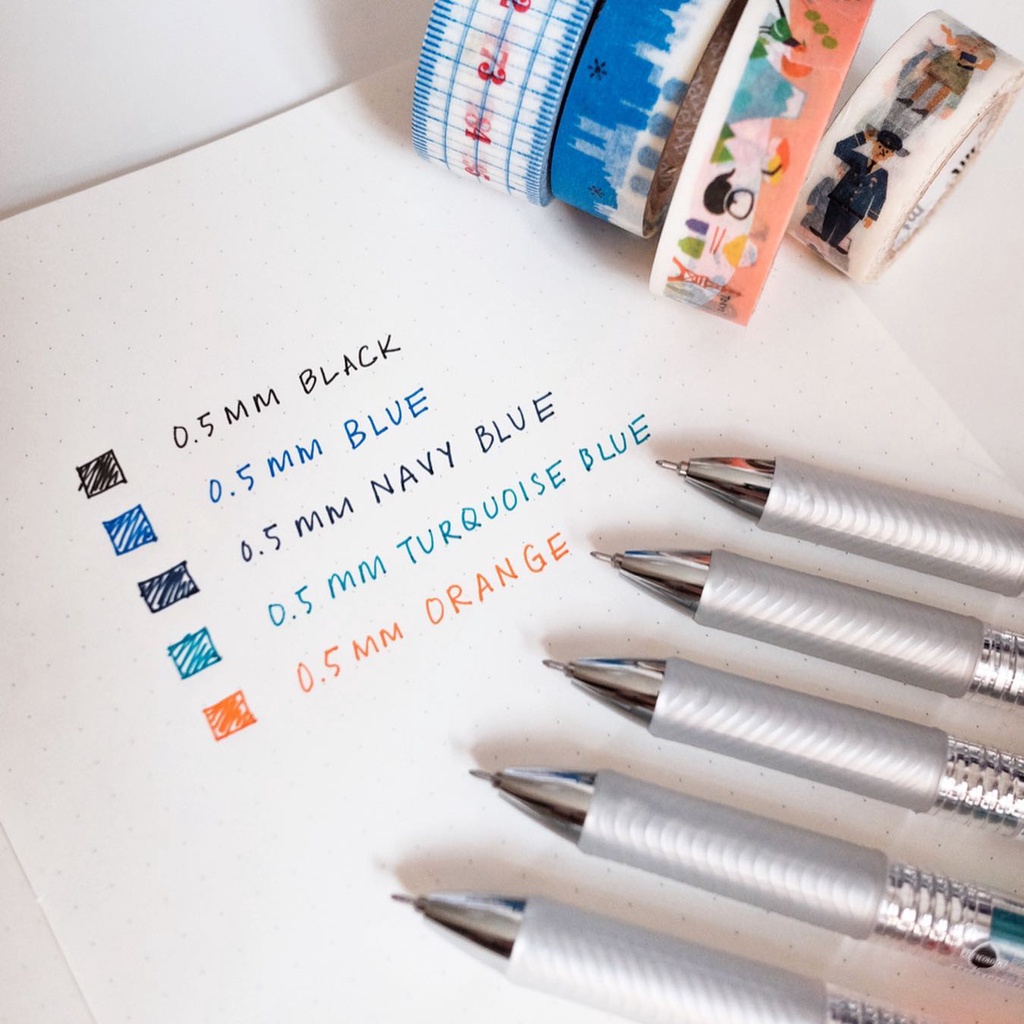 0.5 MM BLACK
0.5 MM BLUE
0.5 MM NAVY BLUE
0.5 MM TURQUOISE BLUE
0.5 MM ORANGE
73